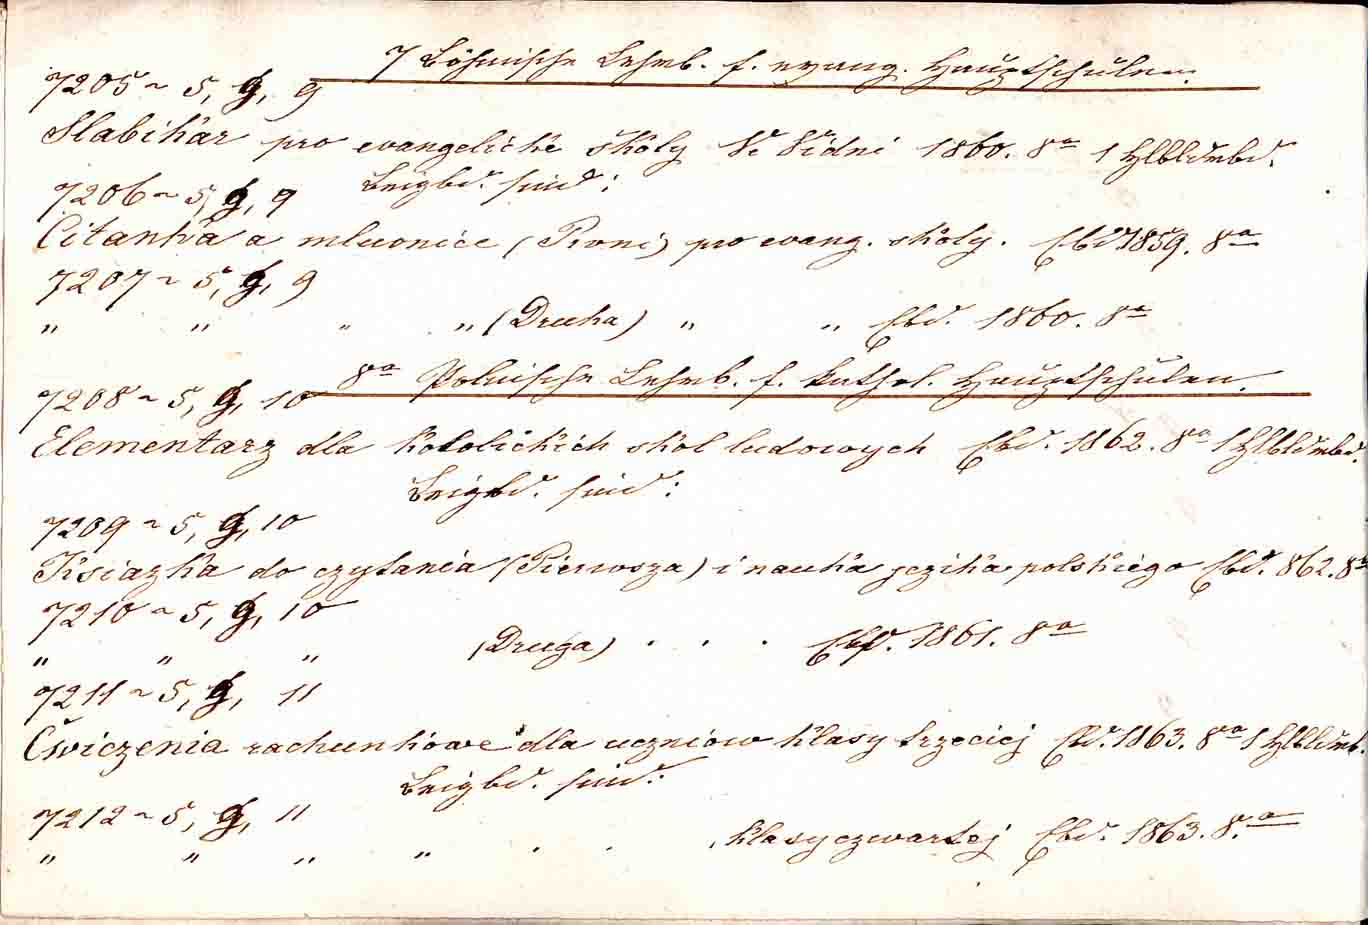 7 Böhmische Lehrb. f. evang. Hauptschulen.
7205 ~ 5, g, 9
Slabikár pro evangelické školy Ve Vídni 1860. 8° 1 Hlbldrbd.
Beigbd. sind:
7206 ~ 5, g, 9
Čitanka a mluvnice (Prvni) pro evang. školy. Ebd. 1859. 8°
7207 ~ 5, g, 9
" " " " (Druha) " " Ebd. 1860. 8°
8a Polnische Lehrb. f. kathol. Hauptschulen.
7208 ~ 5, g, 10
Elementarz dla katolickich skól ludowych Ebd. 1862. 8° 1 Hlbldrbd.
Beigbd. sind:
7209 ~ 5, g, 10
Ksiazka do czytania (Pierwsza) i nauka jezika polskiego Ebd. 862. 8°
7210 ~ 5, g, 10
" " " (Druga) . . . Ebd. 1861. 8°
7211 ~ 5, g, 11
Cwiczenia rachunkowe dla uczniów klasy trzeciej Ebd. 1863. 8° 1 Hlbldrb.
Beigbd. sind:
7212 ~ 5, g, 11
" " " " . . , klasy czwartej Ebd. 1863. 8.°